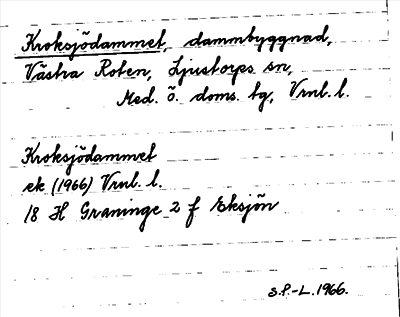 Kroksjödammet, dammbyggnad,
Västra Roten, Ljustorps sn,
Med. ö. doms. tg, Vrnl. l.
Kroksjödammet
ek (1966) Vrnl. l.
18 H Graninge 2 f Eksjön
S.P.-L. 1966.